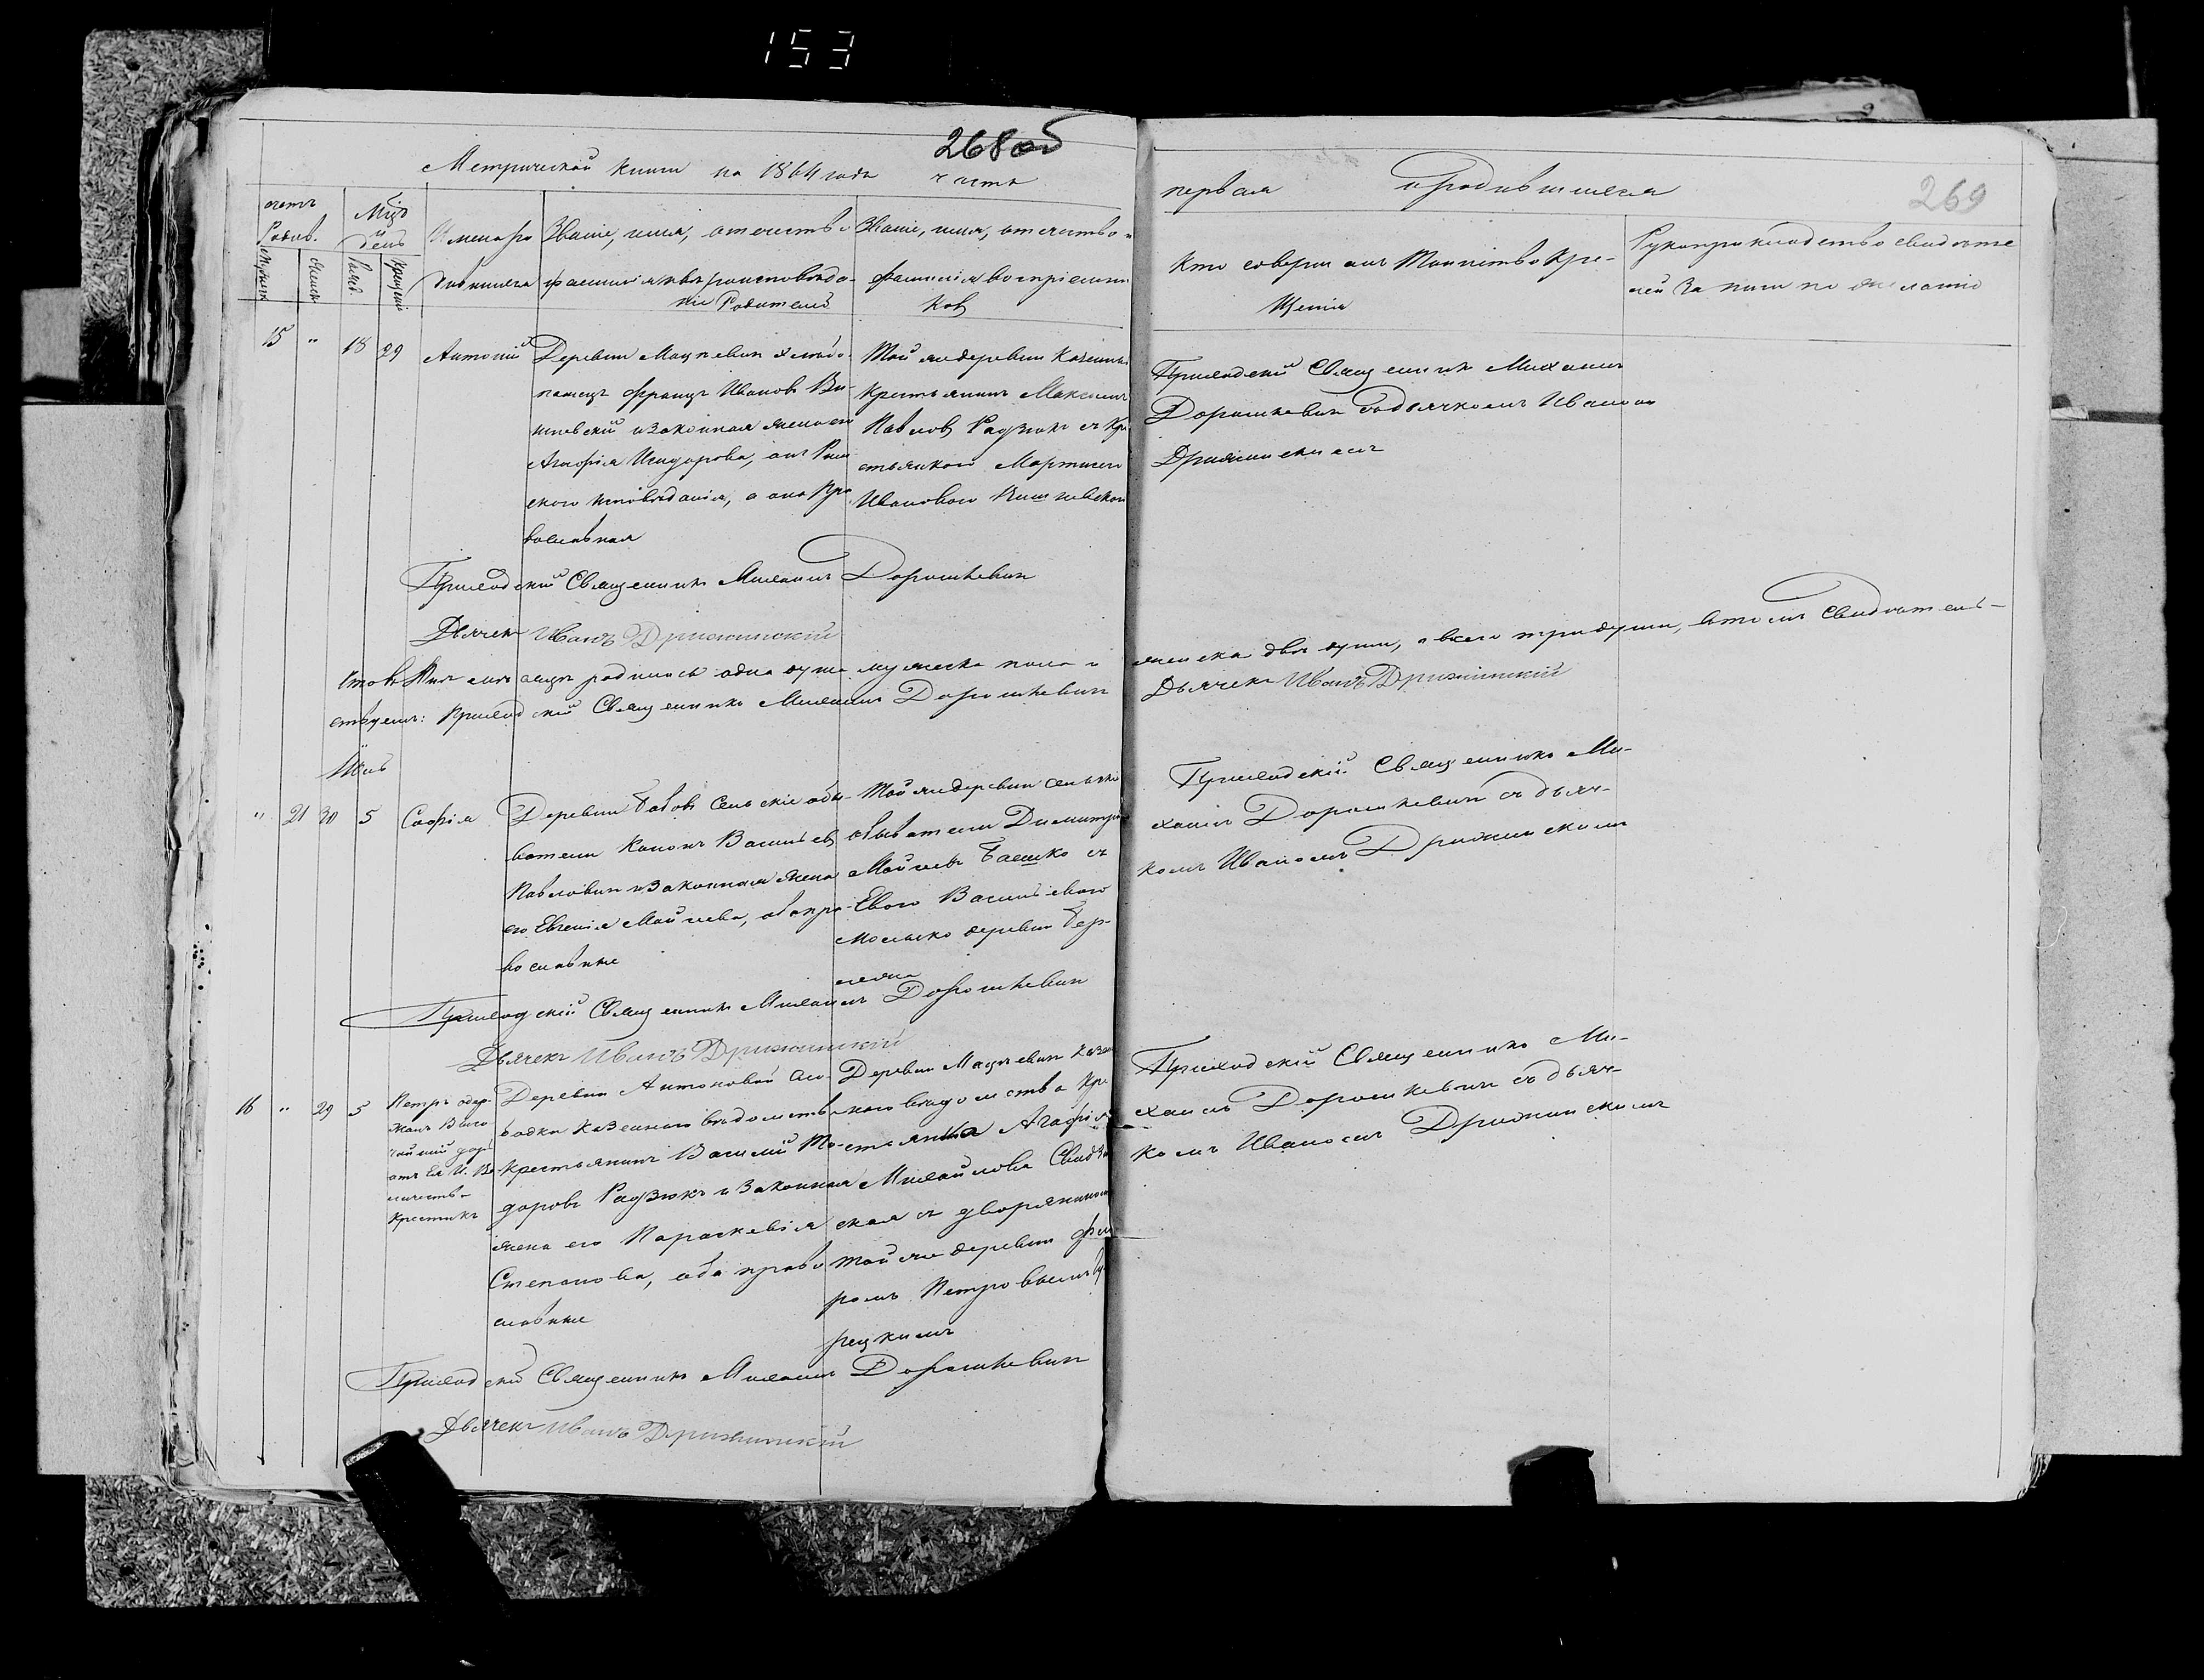 153
268 об
Метрической книги на 1864 года часть
первая о родившихся
269
счетъ Родив.
Мужеск
Женск
Мцъ и день
Рожд.
Крещенія
Имена ро
дившихся
Званіе, имя, отечество и
фамилія и какого вѣроисповѣда-
нія Родителей
Званіе, имя, отечество и
фамилія воспріемни
ковъ
Кто совершалъ Таинство Кре-
щенія
Рукоприкладство свидѣте
лей Записи по желанію
15 " 18 29
Антоній
Деревни Мацкевич хлѣбо-
пашецъ Францъ Ивановъ Ви-
шневскій и законная жена его
Агафія Исидорова, онъ Рим
скаго исповѣданія, а она Пра
вославная
Той же деревни Казенный
крестьянинъ Максимъ
Павловъ Радзюкъ съ Кре
стьянкою Мартиною
Ивановою Вишневскою
Приходскій Священникъ Михаилъ
Дорошкевичъ съ дьячкомъ Иваномъ
Дрижинскимъ
Приходскій Священникъ Михаилъ Дорошкевичъ
Дьячекъ Иванъ Дрижинскій
мѣсяцѣ родилось одна душа мужеска пола и
женска двѣ души, а всего три души, въ томъ Свидѣтель-
ствуемъ: Приходскій Священникъ Михаилъ Дорошкевичъ
Дьячекъ Иванъ Дрижинскій
Іюль
" 21 30 5
Софія
Деревни Бобовъ Сельскіе обы-
ватели Кононъ Васильевъ
Павловичъ и Законная жена
его Евгенія Мойсеева, оба пра-
вославные
Той же деревни сельскій
обыватель Димитрій
Мойсеевъ Баешко съ
Евою Васильевою
Мосейко деревни Бер-
Приходскій Священникъ Ми-
хаилъ Дорошкевичъ съ дьяч-
комъ Иваномъ Дрижинскимъ
Приходскій Священникъ Михаилъ Дорошкевичъ
Дьячекъ Иванъ Дрижинскій
16 " 29 5
Петръ одер-
жанъ Высо
чайшій даръ
отъ Его И. Ве
личества
Крестикъ
Деревни Антоновой Сло-
бодки Казеннаго вѣдомства
Крестьянинъ Василій То-
доровъ Радзюкъ и Законная
жена его Параскевія
Степанова, оба право
славные
Деревни Мацкевич Казен
наго вѣдомства Кре
стьянка Агафія
Михайлова
ская съ дворяниномъ
той же деревни Фео
ромъ Петровымъ
рецкимъ
Приходскій Священникъ Ми-
хаилъ Дорошкевичъ съ дьяч-
комъ Иваномъ Дрижинскимъ
Приходскій Священникъ Михаилъ Дорошкевичъ
Дьячекъ Иванъ Дрижинскій